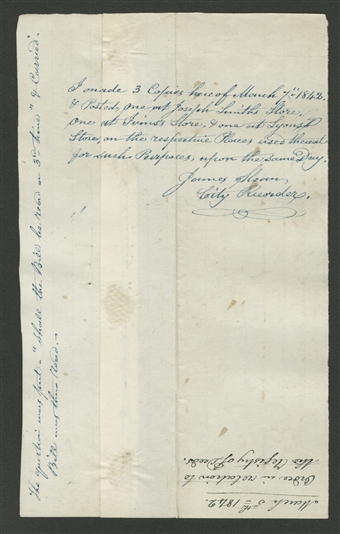 I made 3 Copies hereof March 7th 1842.
& Posted, one at Joseph Smiths Store,
one at Ivins' Store, & one at Lyons's
Store, on the respective Places used there
for such Purposes, upon the same Day.
James Sloan
City Recorder.
The question was put - "Shall the Bill be read a 3rd time" & Carried.
Bill was then Read.
March 5th 1842
Order in relation to
the Registry of Deeds.